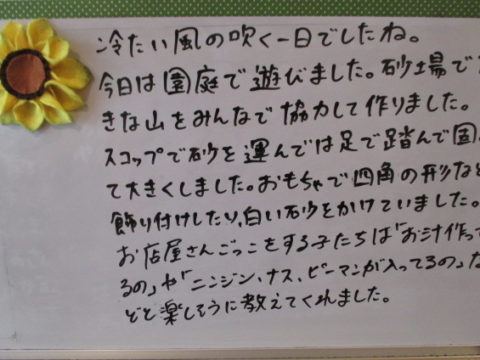 冷たい風の吹く一日でしたね。
今日は園庭で遊びました。砂場で
きな山をみんなで協力して作りました。
スコップで砂を運んでは足で踏んで固
て大きくしました。おもちゃで四角の形など
飾り付けしたり、白い砂をかけていました。
お店屋さんごっこをする子たちは「お汁作って
るの」や「ニンジン、ナス、ピーマンが入ってるの」な
どと楽しそうに教えてくれました。